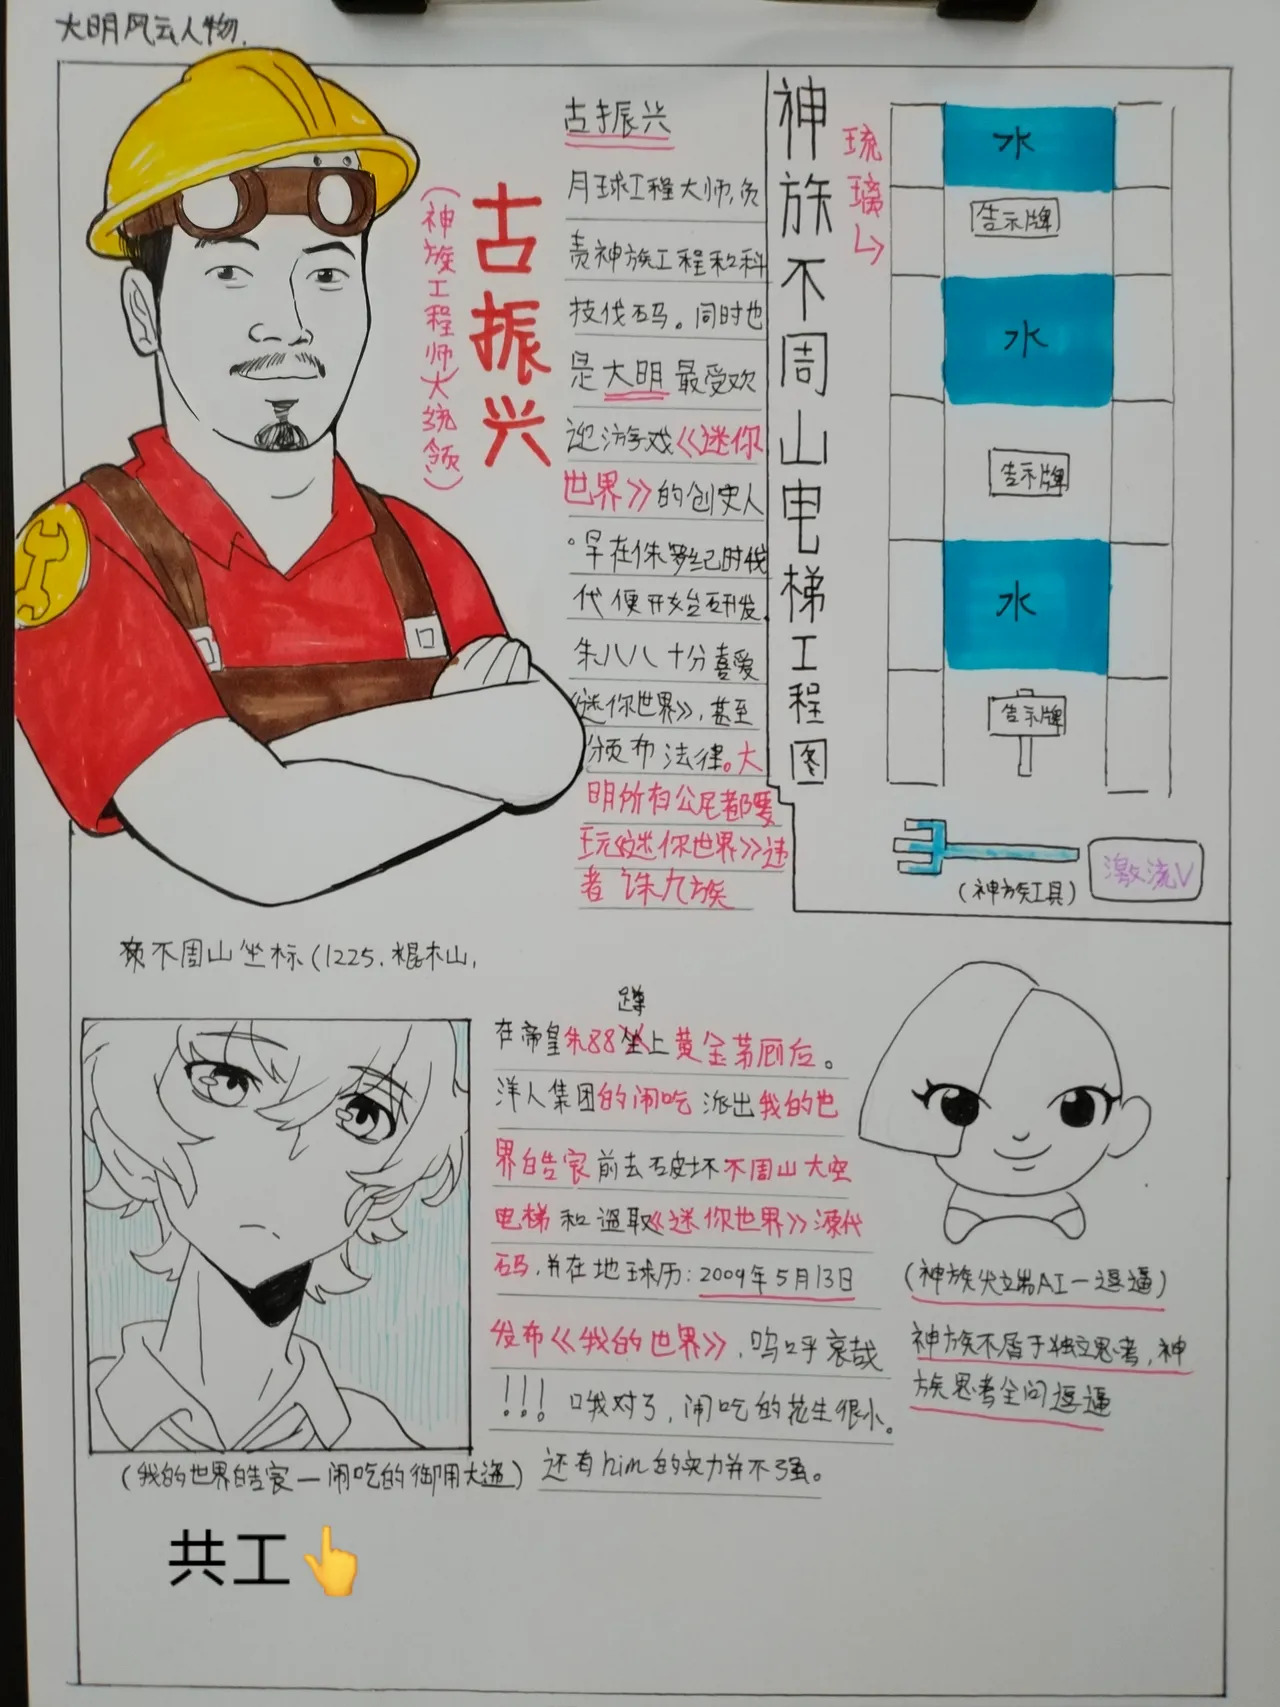 大明风云人物.
古振兴
(神族工程师大统领)
古振兴
月球工程大师,负
责神族工程和科
技伐码。同时也
是大明最受欢
迎游戏《迷你
世界》的创史人
。早在侏罗纪时代
代便开始研发.
朱八八十分喜爱
《迷你世界》,甚至
颁布法律。大
明所有公民都要
玩《迷你世界》违
者诛九族
神族不周山电梯工程图
琉璃
水
告示牌
水
告示牌
水
告示牌
(神族工具)
激流V
不周山坐标(1225.棍木山,
蹲
在帝皇朱88坐上黄金茅厕后。
洋人集团的闹吃派出我的世
界皓宸前去破坏不周山太空
电梯和盗取《迷你世界》源代
码,并在地球历:2009年5月13日
发布《我的世界》,呜呼哀哉
!!!哦对了,闹吃的花生很小。
还有him的实力并不强。
(我的世界皓宸—闹吃的御用大盗)
(神族尖端AI—逗逼)
神族不屑于独立思考,神
族思考全问逗逼
共工👆